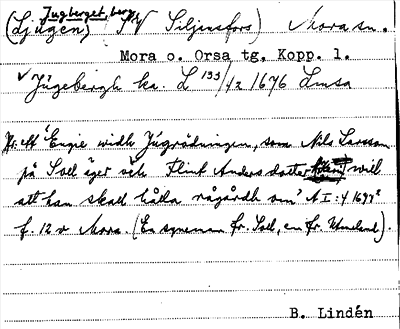 Jugberget, berg
(Ljugen, SV Siljansfors) Mora sn.
Mora o. Orsa tg. Kopp. l.
Jügebergh ka. L 133/12 1676 Lmsa
"Engie widh Jügrödningen, som Nils Larsson
på Soll äger och Flink Anders dotter will
att han skall hålla rågårdh om" A I:4 1697
f. 12 v Mora. (En syneman fr. Soll, en fr. Utmeland).
B. Lindén